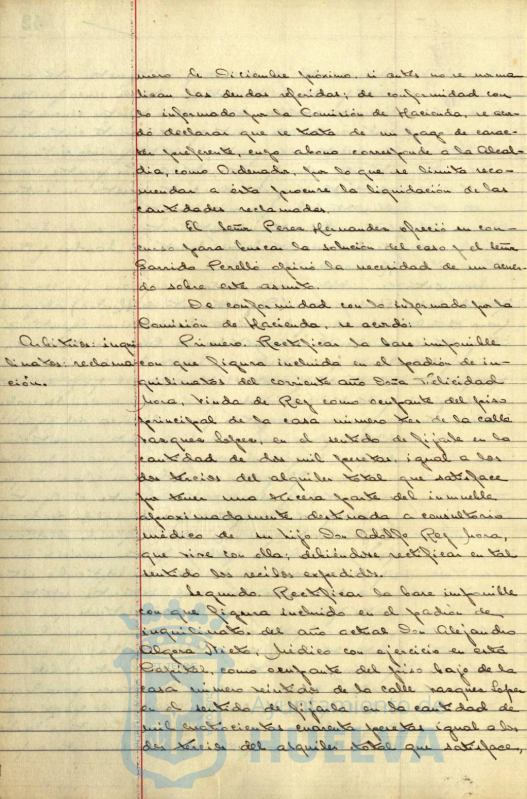 mero de Diciembre próximo, si antes no se norma
lizan las deudas referidas; de conformidad con
lo informado por la Comisión de Hacienda, se acor-
dó declarar que se trata de un pago de carac-
ter preferente, cuyo abono corresponde a la Alcal-
día, como Ordenador, por lo que se limita reco-
mendar a ésta procure la liquidación de las
cantidades reclamadas.
El Señor Perez Hernandez ofreció su con-
curso para buscar la solución del caso y el Señor
Garrido Perelló opinó la necesidad de un acuer-
do sobre este asunto.
De conformidad con lo informado por la
Comisión de Hacienda, se acordó:
Arbitrios: inqui
linatos: reclama
ción.
Primero. Rectificar la base imponible
con que figura incluida en el padrón de in-
quilinatos del corriente año Doña Felicidad
Mora, viuda de Rey como ocupante del piso
principal de la casa número tres de la calle
Vazquez Lopez, en el sentido de fijarle en la
cantidad de dos mil pesetas, igual a los
dos tercios del alquiler total que satisface
por tener una tercera parte del inmueble
aproximadamente destinada a consultorio
médico de su hijo Don Adolfo Rey Mora,
que vive con ella; debiéndose rectificar en tal
sentido los recibos expedidos.
Segundo. Rectificar la base imponible
con que figura incluido en el padrón de
inquilinatos del año actual Don Alejandro
Algora Nieto, Médico con ejercicio en esta
Capital, como ocupante del piso bajo de la
casa número veintidos de la calle Vazquez Lopez
en el sentido de fijarla en la cantidad de
mil cuatrocientas cuarenta pesetas igual a los
dos tercios del alquiler total que satisface,
HUELVA